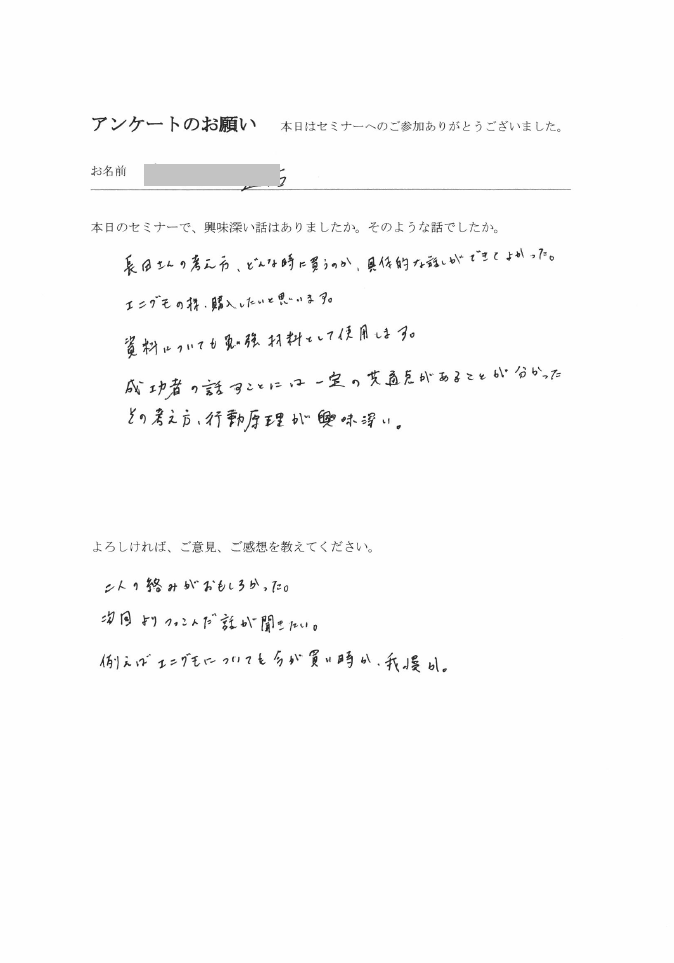 アンケートのお願い　本日はセミナーへのご参加ありがとうございました。
お名前
本日のセミナーで、興味深い話はありましたか。そのような話でしたか。
長田さんの考え方、どんな時に買うのか、具体的な話しができてよかった。
エニグモの株、購入したいと思います。
資料についても勉強材料として使用します。
成功者の話すことには一定の共通点があることが分かった
その考え方、行動原理が興味深い。
よろしければ、ご意見、ご感想を教えてください。
二人の絡みがおもしろかった。
次回よりつっこんだ話が聞きたい。
例えばエニグモについても今が買い時か、我慢か。